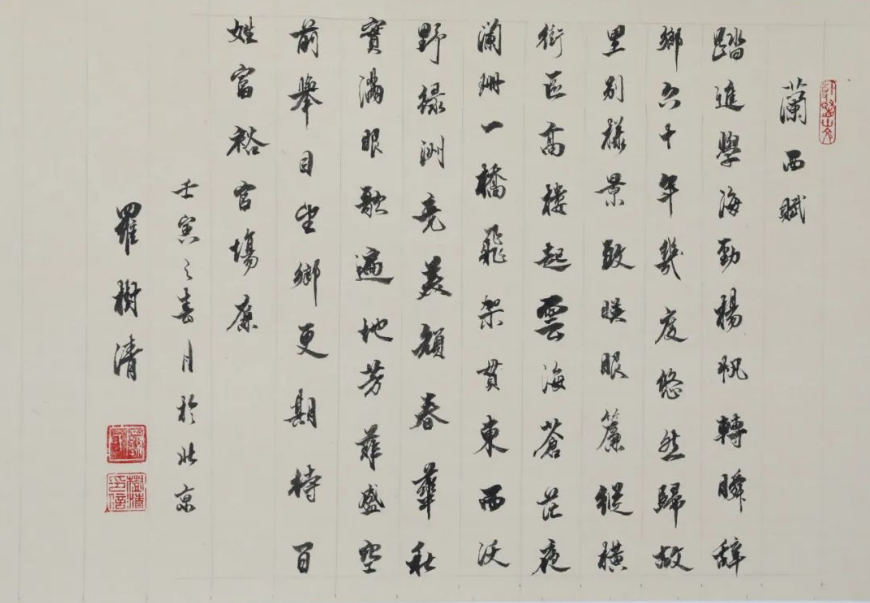 蘭西賦
踏進學海勁楊帆轉瞬辭
鄉六十年幾度悠然歸故
里別樣景致映眼簾縱橫
街區高樓起雲海蒼茫夜
瀾珊一橋飛架貫東西沃
野綠洲竞美顏春華秋
實滿眼歌遍地芳菲盛空
前舉目望鄉更期待百
姓富裕官場廉
壬寅之春月於北京
羅樹清